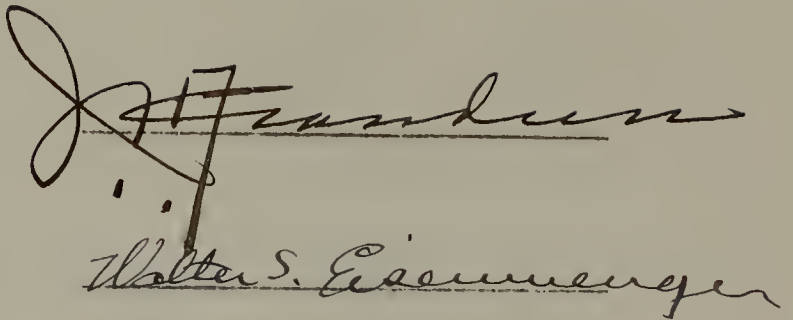 J. H. Frandsen
Walter S. Eisenmenger